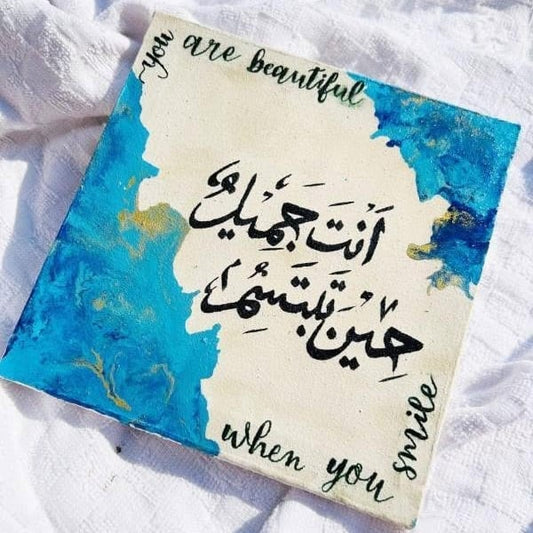 you are beautiful
أَنْتَ جَمِيلٌ
حِيْنَ تَبْتَسِمُ
when you smile